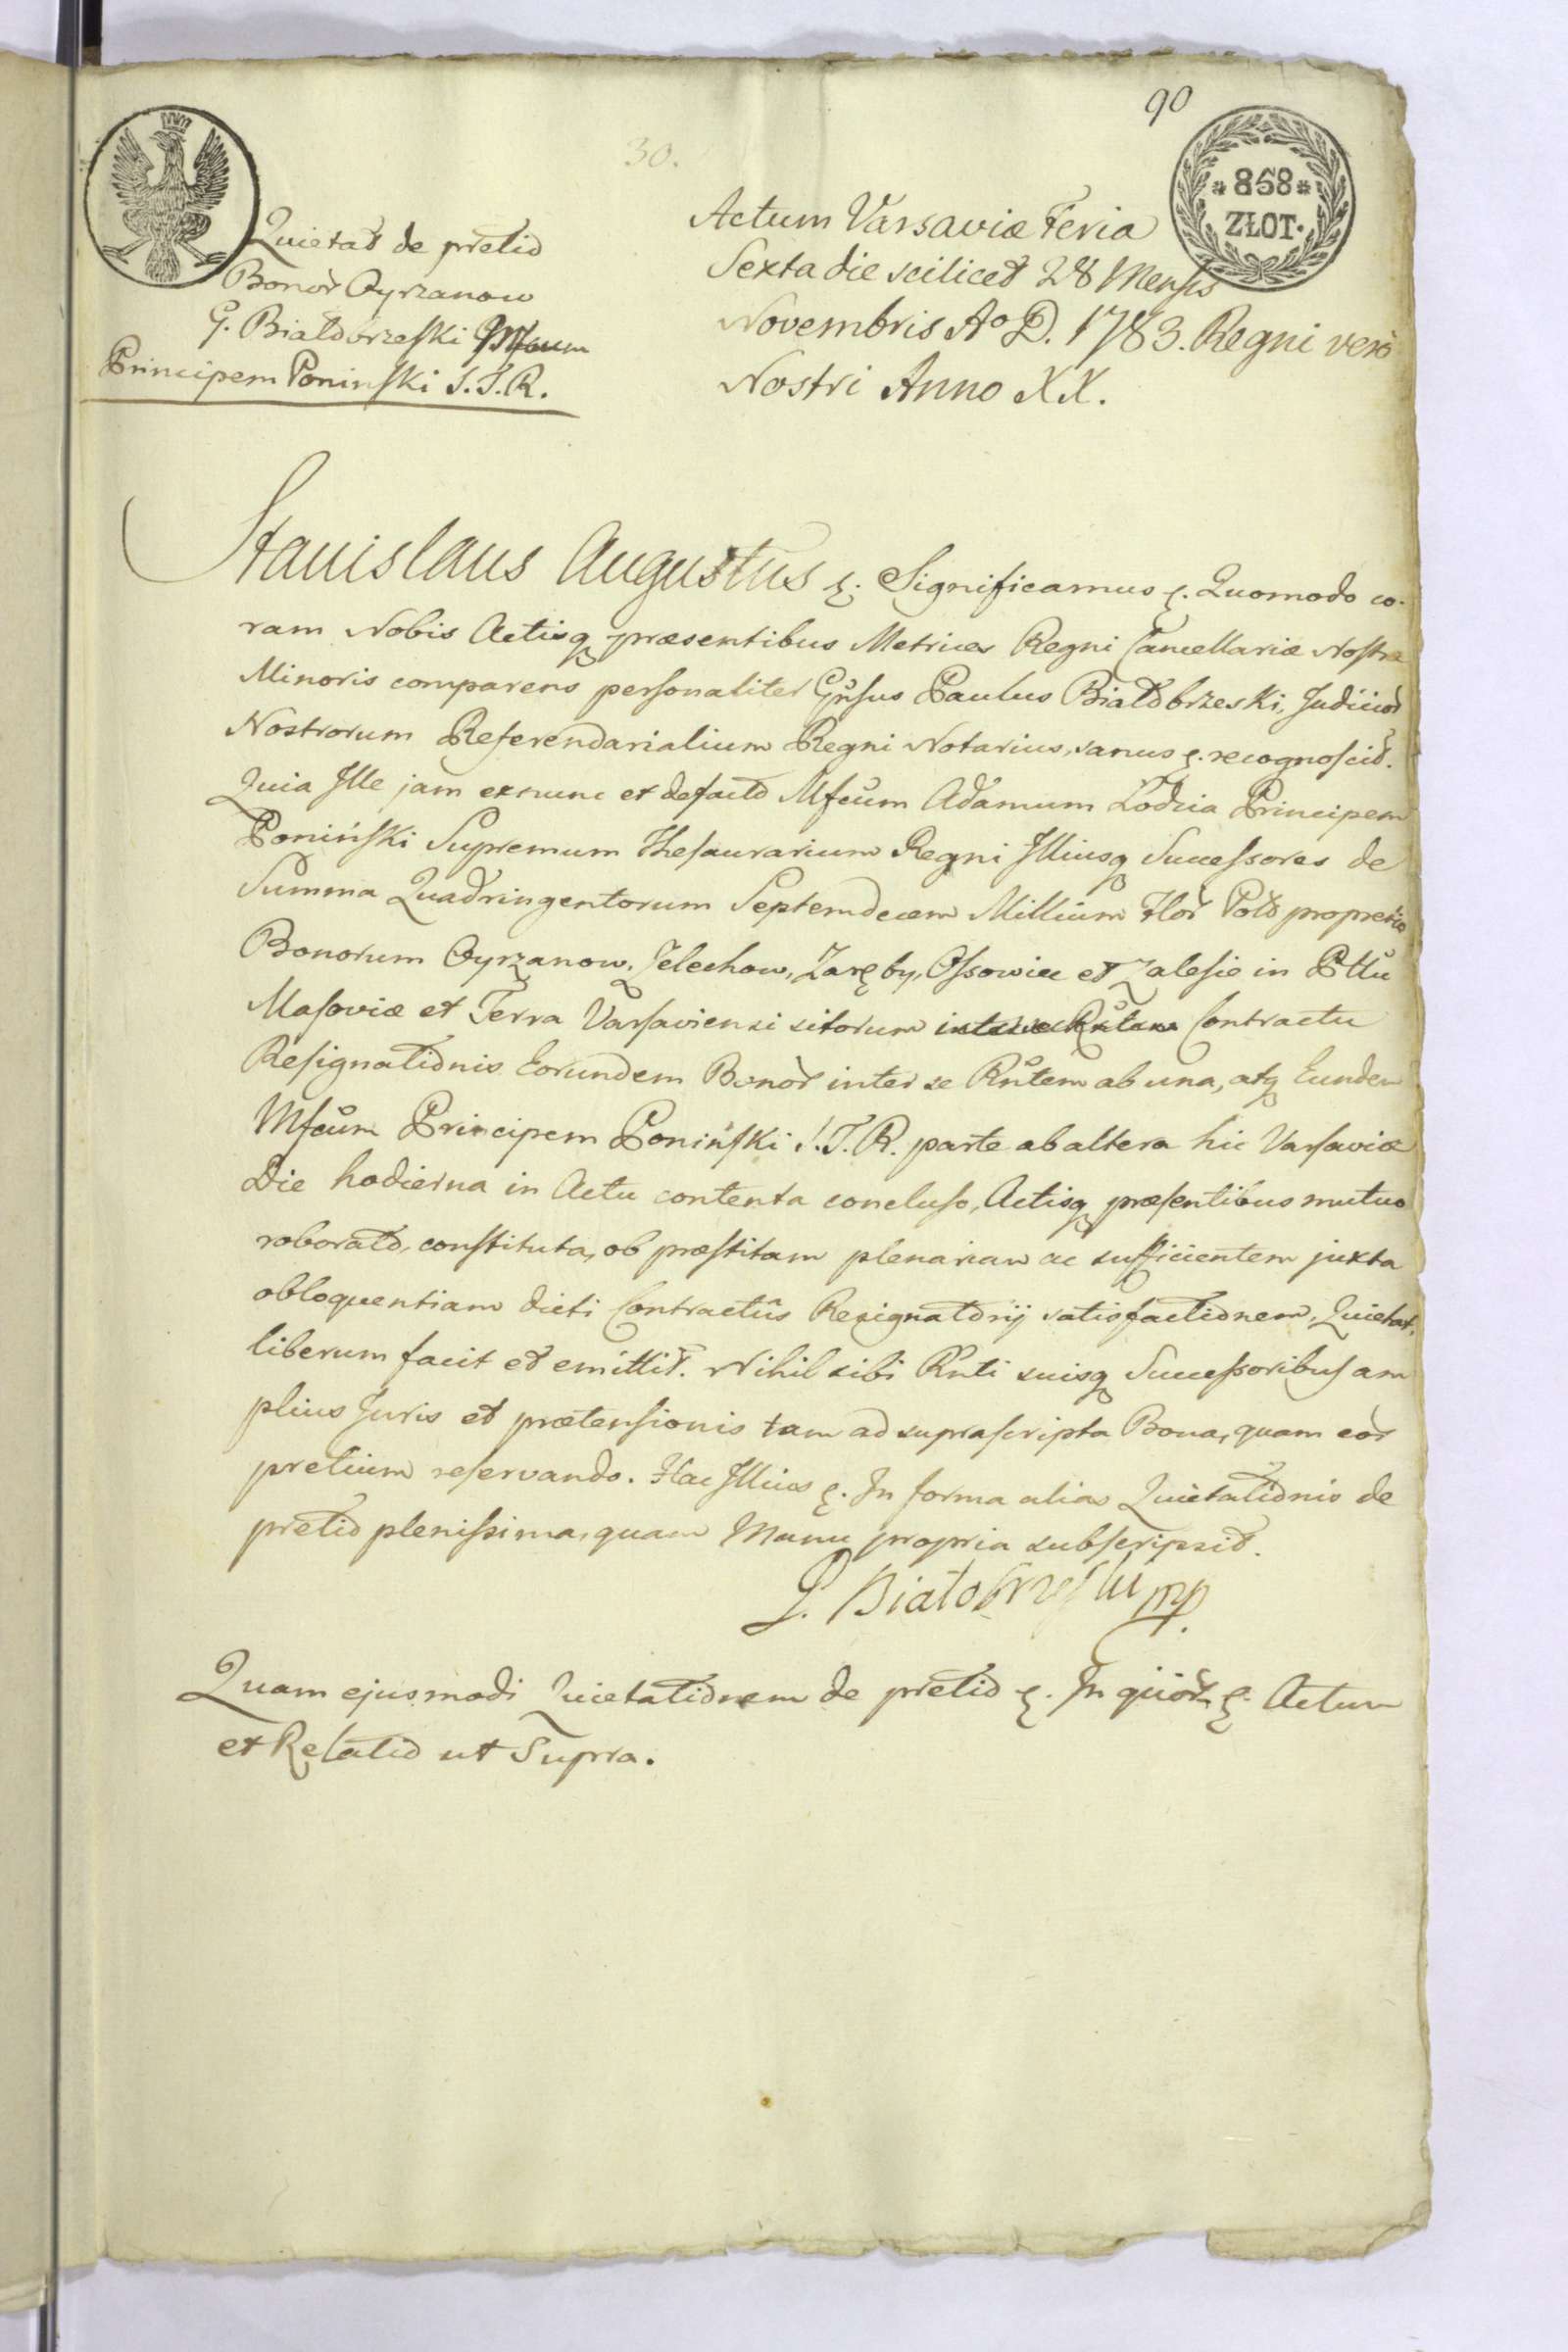 90
30.
* 868 *
ZŁOT.
Quietat de pretio
Bonor Oyrzanow
G. Białobrzeski Mfcum
Principem Poninski S.T.R.
Actum Varsaviæ Feria
Sexta die scilicet 28 Mensis
Novembris Ao D. 1783. Regni verò
Nostri Anno XX.
Stanislaus Augustus &. Significamus &. Quomodo co-
ram Nobis Actisq præsentibus Metrices Regni Cancellariæ Nostræ
Minoris comparens personaliter Gñsus Paulus Białobrzeski, Judicior
Nostrorum Referendarialium Regni Notarius, sanus &. recognoscit.
Quia Ille jam ex nunc et defacto Mfcum Adamum Łodzia Principem
Poniński Supremum Thesaurarium Regni Illiusq Successores de
Summa Quadringentorum Septemdecem Millium Flor Pol pro pretio
Bonorum Oyrzanow, Jelechow, Zaręby, Ossowiec et Zalesie in Pttu
Masoviæ et Terra Varsaviensi sitorum Contractu
Resignationis Eorundem Bonor inter se Rñtem ab una, atq Eundem
Mfcum Principem Poniński S.T.R. parte ab altera hic Varsaviæ
Die hodierna in Actu contenta concluso, Actisq præsentibus mutuo
roborato, constituta, ob præstitam plenariam ac sufficientem juxta
obloquentiam dicti Contractûs Resignatorij satisfactionem, Quietat,
liberum facit et emittit. Nihil sibi Rnti suisq Successoribus am
plius Juris et prætensionis tam ad suprascripta Bona, quam eor
pretium reservando. Hac Illius &. In forma alias Quietationis de
pretio plenissima, quam Manu propria subscripsit.
P. Białobrzeski mp.
Quam ejusmodi Quietationem de pretio &. In quor &. Actum
et Relatio ut Supra.